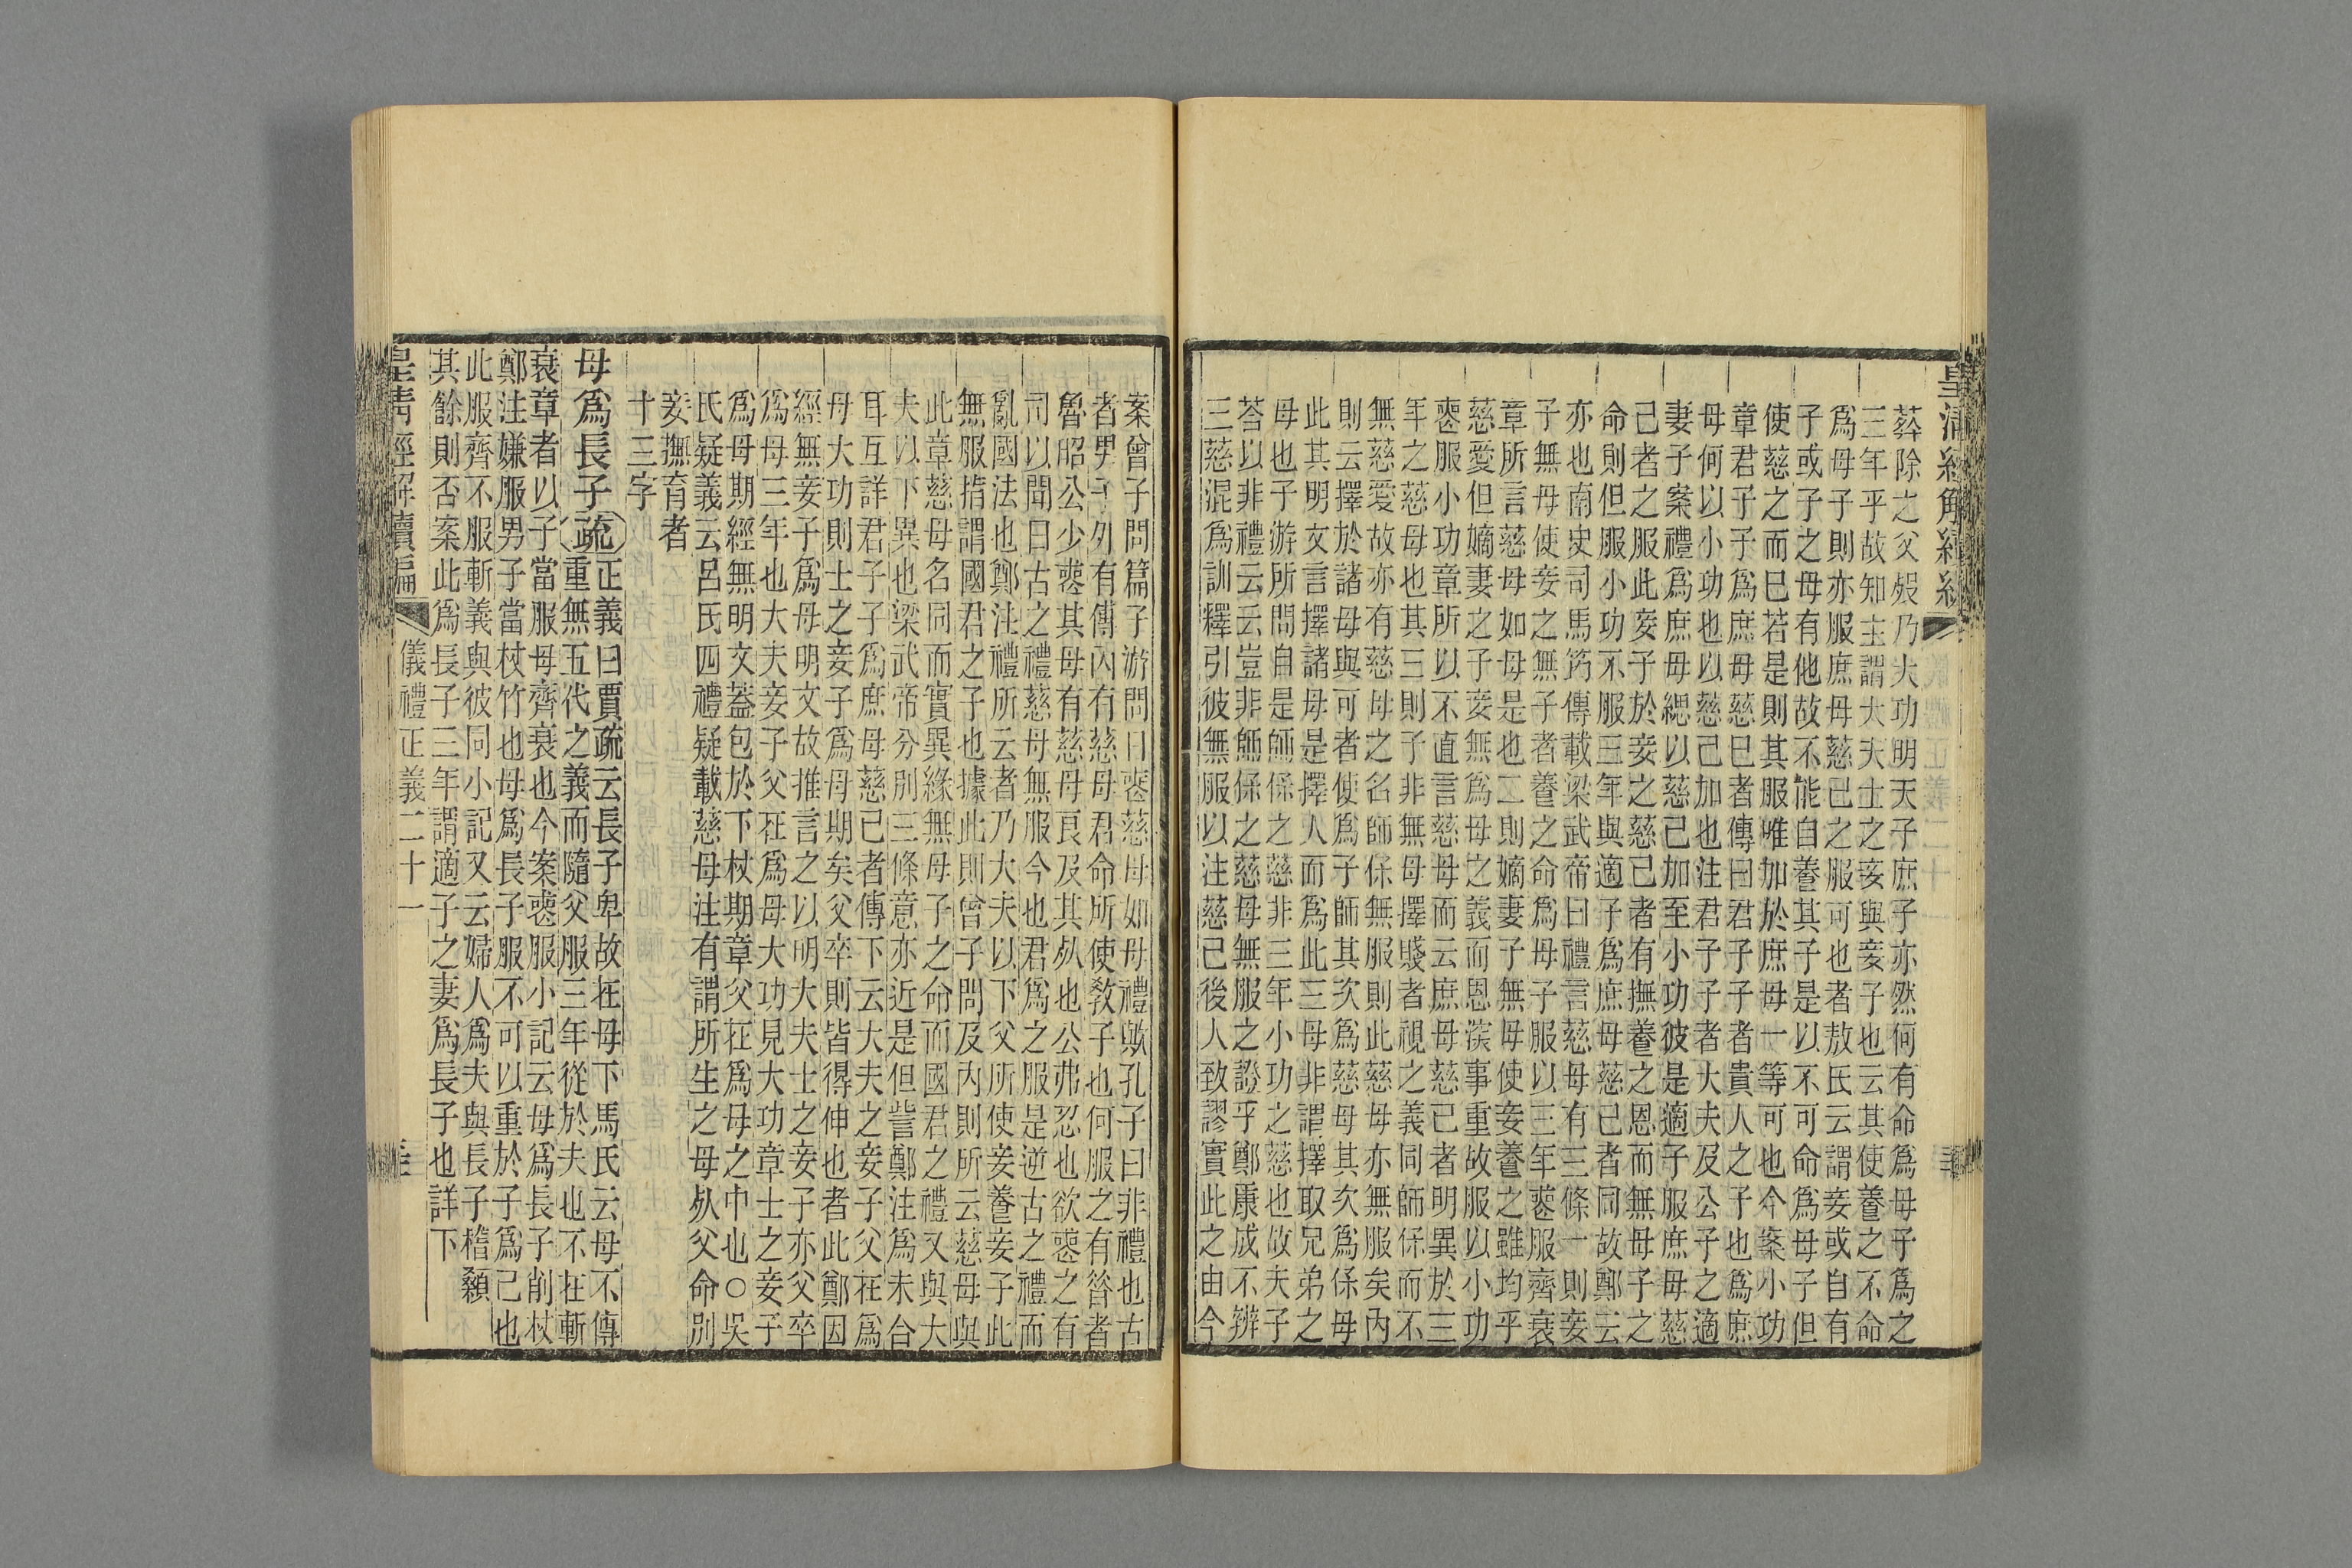 皇清經解續編
葬除之父殁乃大功明天子庶子亦然何有命為母子為之
三年乎故知主謂大夫士之妾與妾子也云其使養之不命
為母子則亦服庶母慈己之服可也者敖氏云謂妾或自有
子或子之母有他故不能自養其子是以不可命為母子但
使慈之而已若是則其服唯加於庶母一等可也今案小功
章君子子為庶母慈己者傳曰君子子者貴人之子也為庶
母何以小功也以慈己加也注君子子者大夫及公子之適
妻子案禮為庶母緦以慈己加至小功彼是適子服庶母慈
己者之服此妾子於妾之慈己者有撫養之恩而無母子之
命則但服小功不服三年與適子為庶母慈己者同故鄭云
亦也南史司馬筠傳載梁武帝曰禮言慈母有三條一則妾
子無母使妾之無子者養之命為母子服以三年喪服齊衰
章所言慈母如母是也二則嫡妻子無母使妾養之雖均乎
慈愛但嫡妻之子妾無為母之義而恩深事重故服以小功
喪服小功章所以不直言慈母而云庶母慈己者明異於三
年之慈母也其三則子非無母擇賤者視之義同師保而不
無慈愛故亦有慈母之名師保無服則此慈母亦無服矣內
則云擇於諸母與可者使為子師其次為慈母其次為保母
此其明文言擇諸母是擇人而為此三母非謂擇取兄弟之
母也子游所問自是師保之慈非三年小功之慈也故夫子
荅以非禮云云豈非師保之慈母無服之證乎鄭康成不辨
三慈混為訓釋引彼無服以注慈己後人致謬實此之由今
案曾子問篇子游問曰喪慈母如母禮歟孔子曰非禮也古
者男子外有傅內有慈母君命所使敎子也何服之有昝者
魯昭公少喪其母有慈母良及其死也公弗忍也欲喪之有
司以聞曰古之禮慈母無服今也君為之服是逆古之禮而
亂國法也鄭注禮所云者乃大夫以下父所使妾養妾子此
無服指謂國君之子也據此則曾子問及內則所云慈母與
此章慈母名同而實異緣無母子之命而國君之禮又與大
夫以下異也梁武帝分別三條意亦近是但訾鄭注為未合
耳互詳君子子為庶母慈己者傳下云大夫之妾子父在為
母大功則士之妾子為母期矣父卒則皆得伸也者此鄭因
經無妾子為母明文故推言之以明大夫士之妾子亦父卒
為母三年也大夫妾子父在為母大功見大功章士之妾子
為母期經無明文蓋包於下杖期章父在為母之中也○吳
氏疑義云呂氏四禮疑載慈母注有謂所生之母死父命別
妾撫育者
十三字
母為長子疏正義曰賈疏云長子卑故在母下馬氏云母不傳
重無五代之義而隨父服三年從於夫也不在斬
衰章者以子當服母齊衰也今案喪服小記云母為長子削杖
鄭注嫌服男子當杖竹也母為長子服不可以重於子為己也
此服齊不服斬義與彼同小記又云婦人為夫與長子稽顙
其餘則否案此為長子三年謂適子之妻為長子也詳下
皇清經解續編 儀禮正義二十一